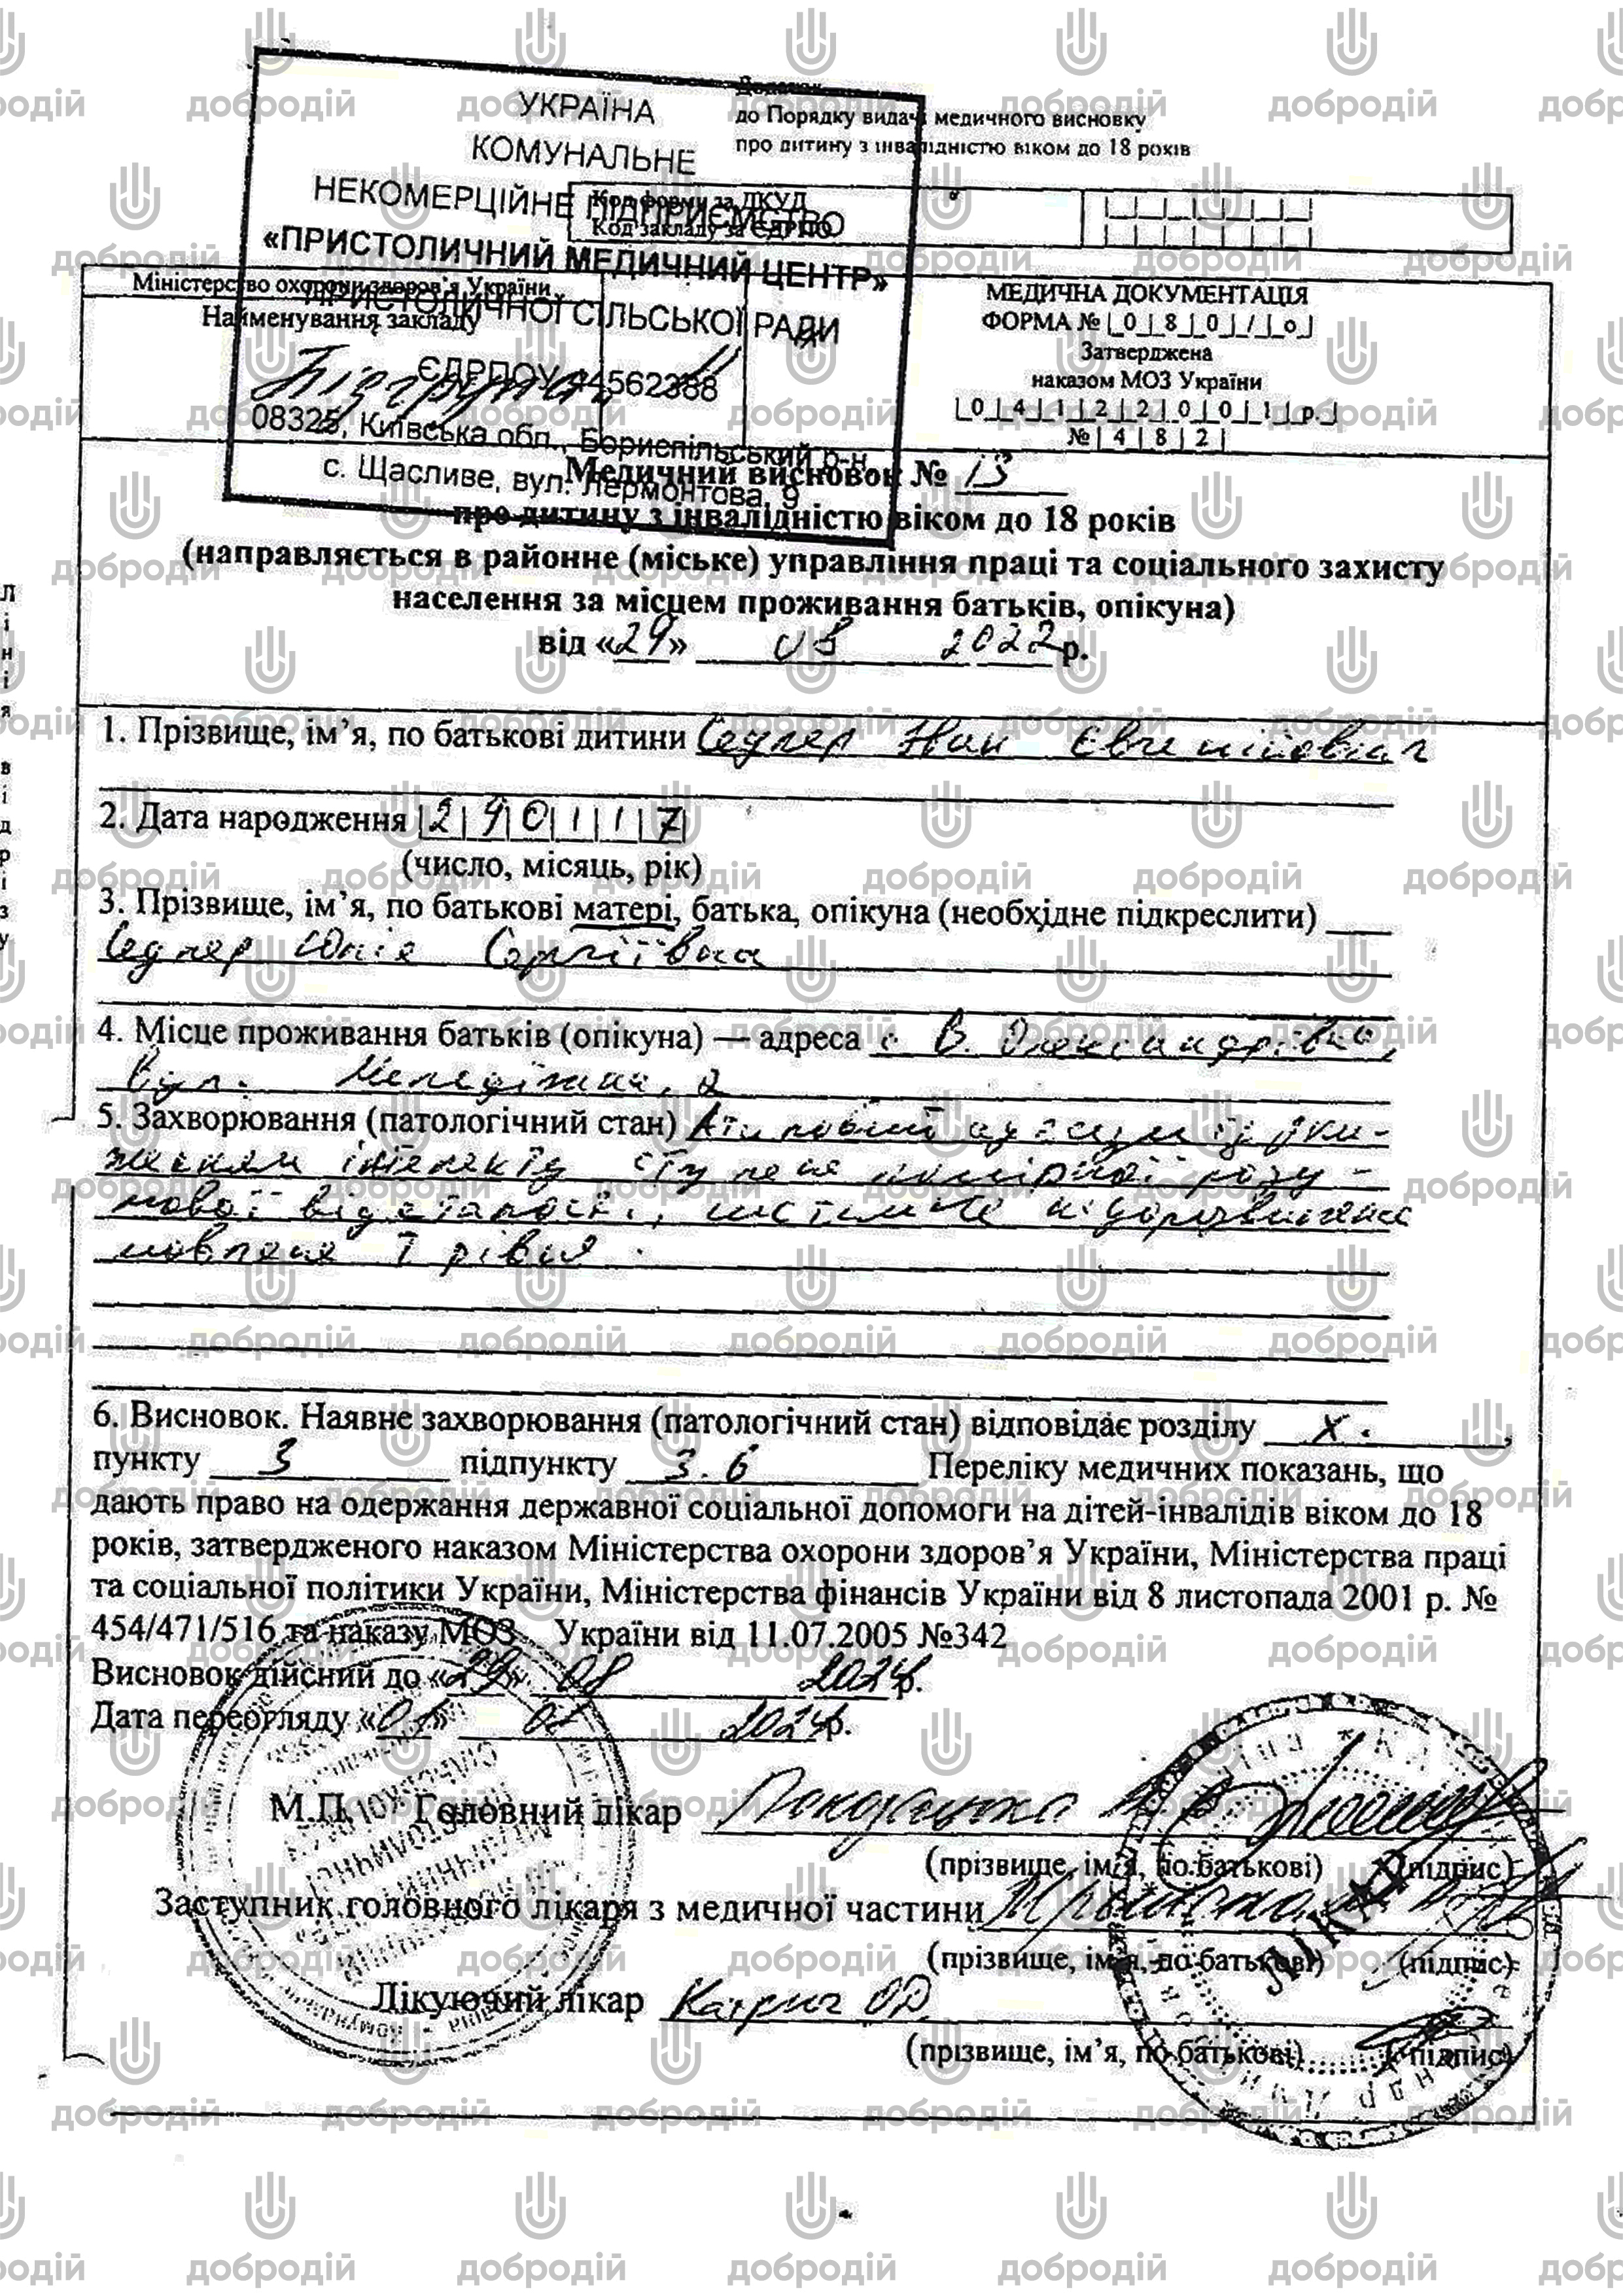 Додаток
до Порядку видачі медичного висновку
про дитину з інвалідністю віком до 18 років
УКРАЇНА
КОМУНАЛЬНЕ
НЕКОМЕРЦІЙНЕ ПІДПРИЄМСТВО
«ПРИСТОЛИЧНИЙ МЕДИЧНИЙ ЦЕНТР»
ПРИСТОЛИЧНОЇ СІЛЬСЬКОЇ РАДИ
ЄДРПОУ 44562388
08325, Київська обл., Бориспільський р-н,
с. Щасливе, вул. Лермонтова, 9
Код форми за ДКУД
Код закладу за ЄДРПО
Міністерство охорони здоров'я України
Найменування закладу
МЕДИЧНА ДОКУМЕНТАЦІЯ
ФОРМА № |_0_|_8_|_0_|_/_|_о_|
Затверджена
наказом МОЗ України
|_0_|_4_|_1_|_2_|_2_|_0_|_0_|_1_|_р._|
№ |_4_|_8_|_2_|
Медичний висновок № 13
про дитину з інвалідністю віком до 18 років
(направляється в районне (міське) управління праці та соціального захисту
населення за місцем проживання батьків, опікуна)
від «29» 08 2022 р.
1. Прізвище, ім'я, по батькові дитини Седлер Ян Євгенійович
2. Дата народження
(число, місяць, рік)
3. Прізвище, ім'я, по батькові матері, батька, опікуна (необхідне підкреслити)
Седлер Юлія Сергіївна
4. Місце проживання батьків (опікуна) — адреса с. В. Олександрівка,
вул.
5. Захворювання (патологічний стан) Атиповий аутизм із зни-
женням інтелекту ступеня помірної розу-
мової відсталості, системне недорозвинення
мовлення I рівня.
6. Висновок. Наявне захворювання (патологічний стан) відповідає розділу X.,
пункту 3 підпункту 3.6 Переліку медичних показань, що
дають право на одержання державної соціальної допомоги на дітей-інвалідів віком до 18
років, затвердженого наказом Міністерства охорони здоров'я України, Міністерства праці
та соціальної політики України, Міністерства фінансів України від 8 листопада 2001 р. №
454/471/516 та наказу МОЗ України від 11.07.2005 №342
Висновок дійсний до «29» 08 2024р.
Дата переогляду «01» 08 2024р.
М.П. Головний лікар
(прізвище, ім'я, по батькові) (підпис)
Заступник головного лікаря з медичної частини
(прізвище, ім'я, по батькові) (підпис)
ЛІКАР
Лікуючий лікар
(прізвище, ім'я, по батькові) (підпис)
Л і н і я в і д р і з у
добродій